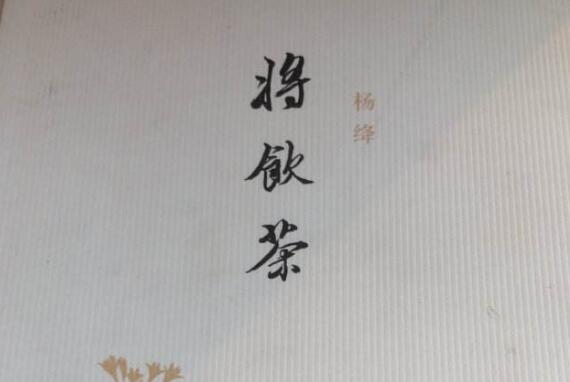 将飲茶
杨绛